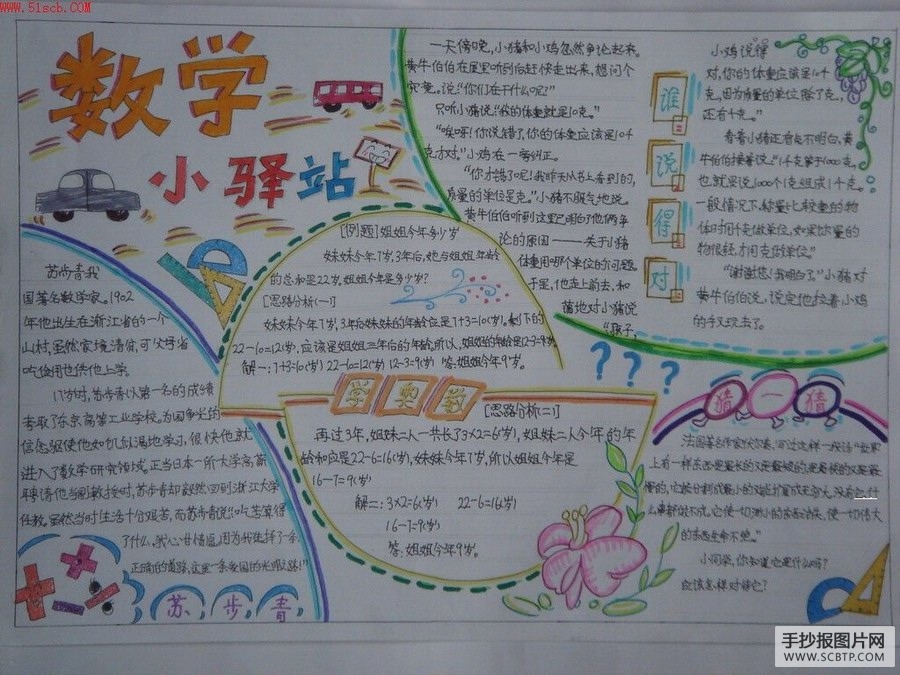 www.51scb.com
数学
小驿站
苏步青我
国著名数学家。1902
年他出生在浙江省的一个
山村,虽然家境清贫,可父母省
吃俭用也供他上学。
17岁时,苏步青以第一名的成绩
考取了东京高等工业学校,为国争光的
信念驱使他如饥似渴地学习,很快他就
进入了数学研究领域。正当日本一所大学高薪
聘请他当副教授时,苏步青却毅然回到浙江大学
任教。虽然当时生活十分艰苦,而苏步青说“吃苦算得
了什么,我心甘情愿,因为我选择了一条
正确的道路,这是一条爱国的光明之路!”
苏步青
[例题]姐姐今年多少岁
妹妹今年7岁,3年后,她与姐姐年龄
的总和是22岁,姐姐今年是多少岁?
[思路分析(一)]
妹妹今年7岁,3年后妹妹的年龄应是7+3=10(岁)。剩下的
22-10=12(岁),应该是姐姐三年后的年龄,所以,姐姐的年龄是12-3=9(岁)。
解一:7+3=10(岁) 22-10=12(岁) 12-3=9(岁) 答:姐姐今年9岁。
学奥数
[思路分析(二)]
再过3年,姐妹二人一共长了3×2=6(岁),姐妹二人今年的年
龄和应是22-6=16(岁),妹妹今年7岁,所以姐姐今年是
16-7=9(岁)
解二:3×2=6(岁) 22-6=16(岁)
16-7=9(岁)
答:姐姐今年9岁。
一天傍晚,小猪和小鸡忽然争论起来。
黄牛伯伯在屋里听到后赶快走出来,想问个
究竟。说:“你们在干什么呢?”
只听小猪说:“我的体重就是10克。”
“唉呀!你说错了,你的体重应该是10千
克才对。”小鸡在一旁纠正。
“你才错了呢!我昨天从书上看到的,
质量的单位是克。”小猪不服气地说。
黄牛伯伯听到这里已明白了他俩争
论的原因——关于小猪
体重用哪个单位的问题。
于是,他走上前去,和
蔼地对小猪说
“孩子,
谁
说
得
对
小鸡说得
对,你的体重应该是10千
克,因为质量的单位除了克,
还有千克。”
看着小猪还有点不明白,黄
牛伯伯接着说:“1千克等于1000克,
也就是说1000个1克组成1千克。
一般情况下,称量比较重的物
体时用千克做单位,如果称量的
物很轻,才用克做单位。”
“谢谢您!我明白了。”小猪对
黄牛伯伯说,说完他拉着小鸡
的手又玩去了。
???
猜一猜
法国著名作家伏尔泰,写过这样一段话:“世界
上有一样东西是最长的又是最短的,是最快的又是最
慢的,它能分割成最小的又能扩展成无穷大,没有它,什
么事都做不成,它使一切渺小的东西消失,使一切伟大
的东西生命不绝。”
小同学,你知道它是什么吗?
应该怎样对待它?
手抄报图片网
WWW.SCBTP.COM